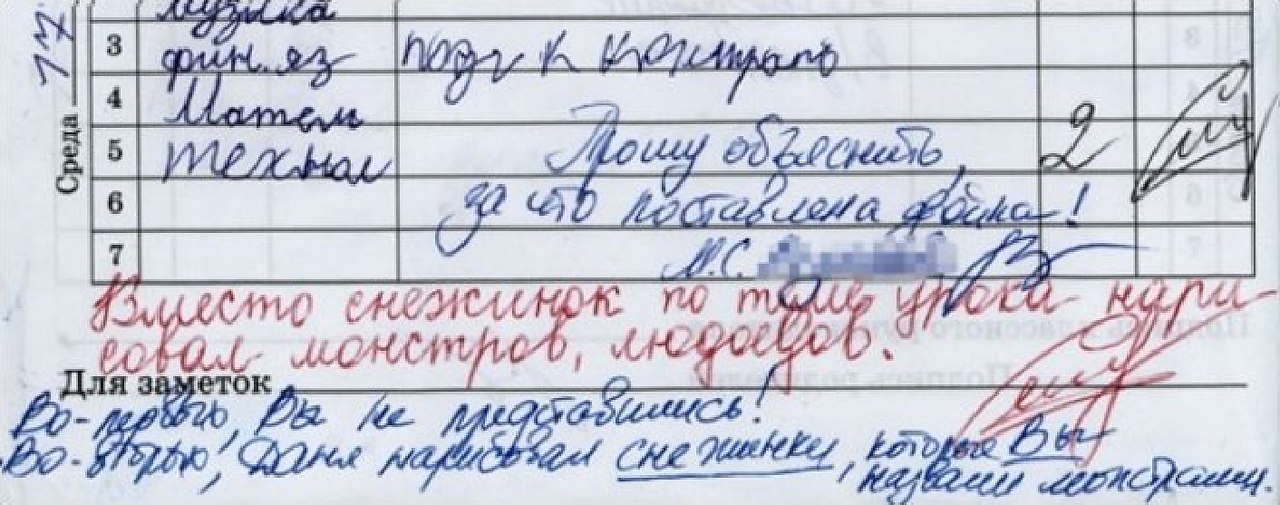 Среда
музыка
3 фин. яз подг к контроль
4 Матем
5 технол Прошу объяснить, 2
6 за что поставлена двойка!
7 М.С.
Вместо снежинок по теме урока нари
совал монстров, людоедов.
Для заметок
Во-первых, Вы не представились!
Во-вторых, Даня нарисовал снежинки, которые Вы
назвали монстрами.